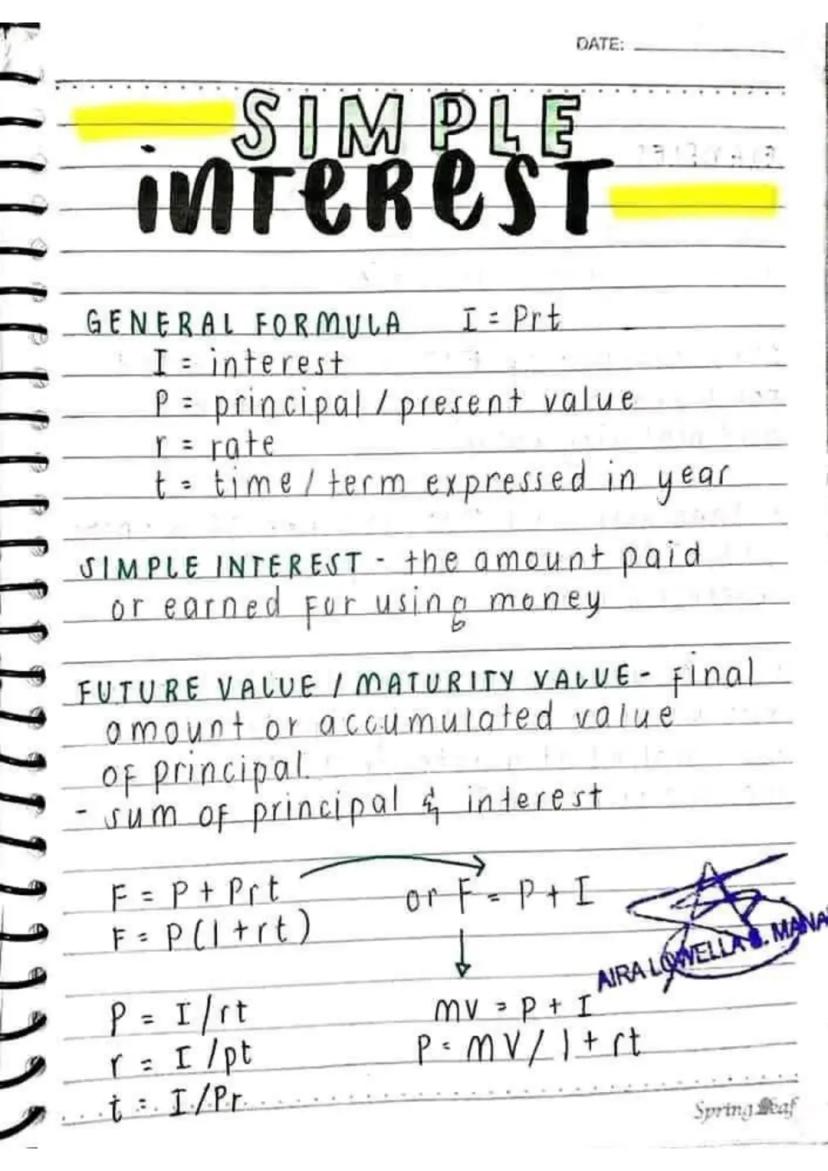 DATE:
SIMPLE
INTEREST
GENERAL FORMULA I = Prt
I = interest
P = principal / present value
r = rate
t = time / term expressed in year
SIMPLE INTEREST - the amount paid
or earned for using money
FUTURE VALUE / MATURITY VALUE - final
amount or accumulated value
of principal.
- sum of principal & interest
F = P + Prt or F = P + I
F = P(1+rt)
AIRA LOWELLA S. MANA
P = I/rt mv = P + I
r = I/pt P = mV/1+rt
t = I/Pr
Spring Leaf